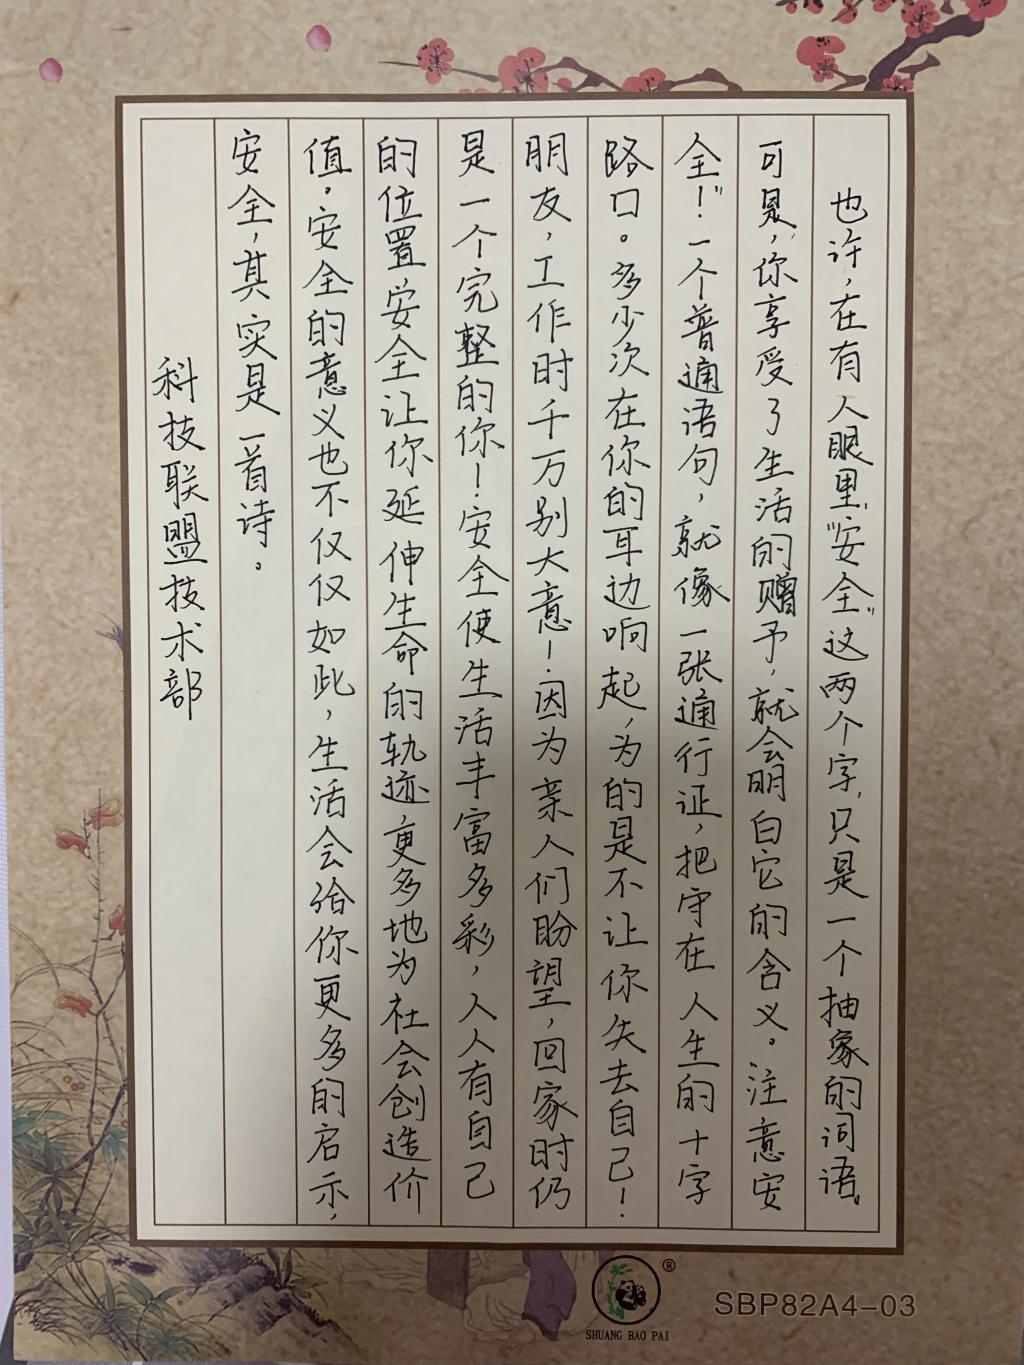 也许，在有人眼里，“安全”这两个字，只是一个抽象的词语。
可是，你享受了生活的赠予，就会明白它的含义。注意安
全！”一个普通语句，就像一张通行证，把守在人生的十字
路口。多少次在你的耳边响起，为的是不让你失去自己！
朋友，工作时千万别大意！因为亲人们盼望，回家时仍
是一个完整的你！安全使生活丰富多彩，人人有自己
的位置安全让你延伸生命的轨迹更多地为社会创造价
值。安全的意义也不仅仅如此，生活会给你更多的启示，
安全，其实是一首诗。
科技联盟技术部
SHUANG BAO PAI
®
SBP82A4-03